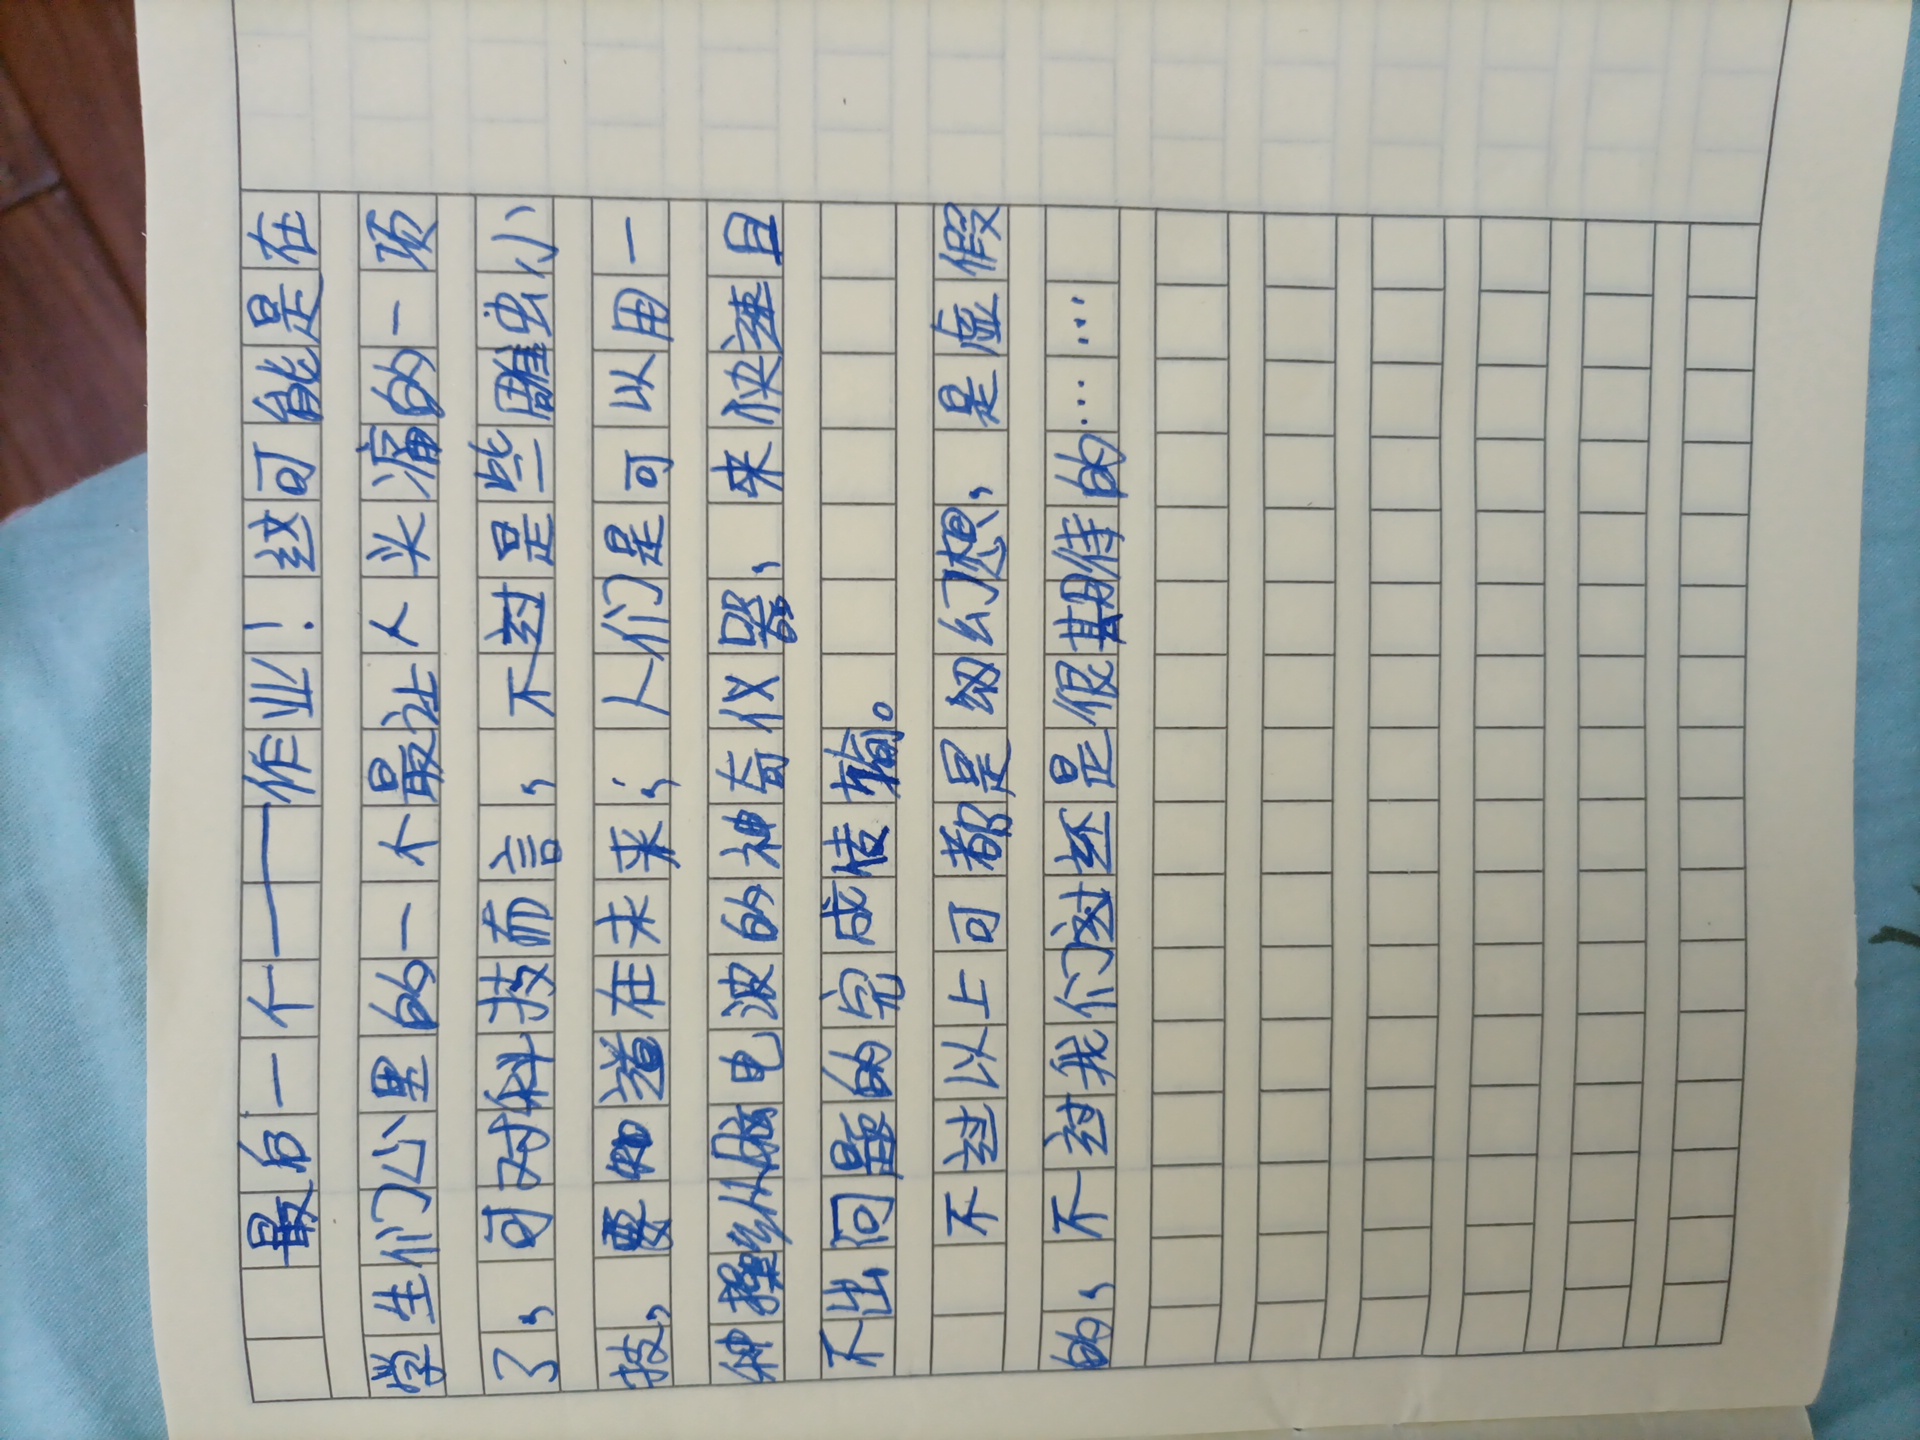 最后一个——作业！这可能是在
学生们心里的一个最让人头痛的一项
了，可对科技而言，不过是些雕虫小
技，要知道在未来；人们是可以用一
种操纵脑电波的神奇仪器，来快速且
不出问题的完成传输。
不过以上可都是幻想，是虚假
的，不过我们对还是很期待的……